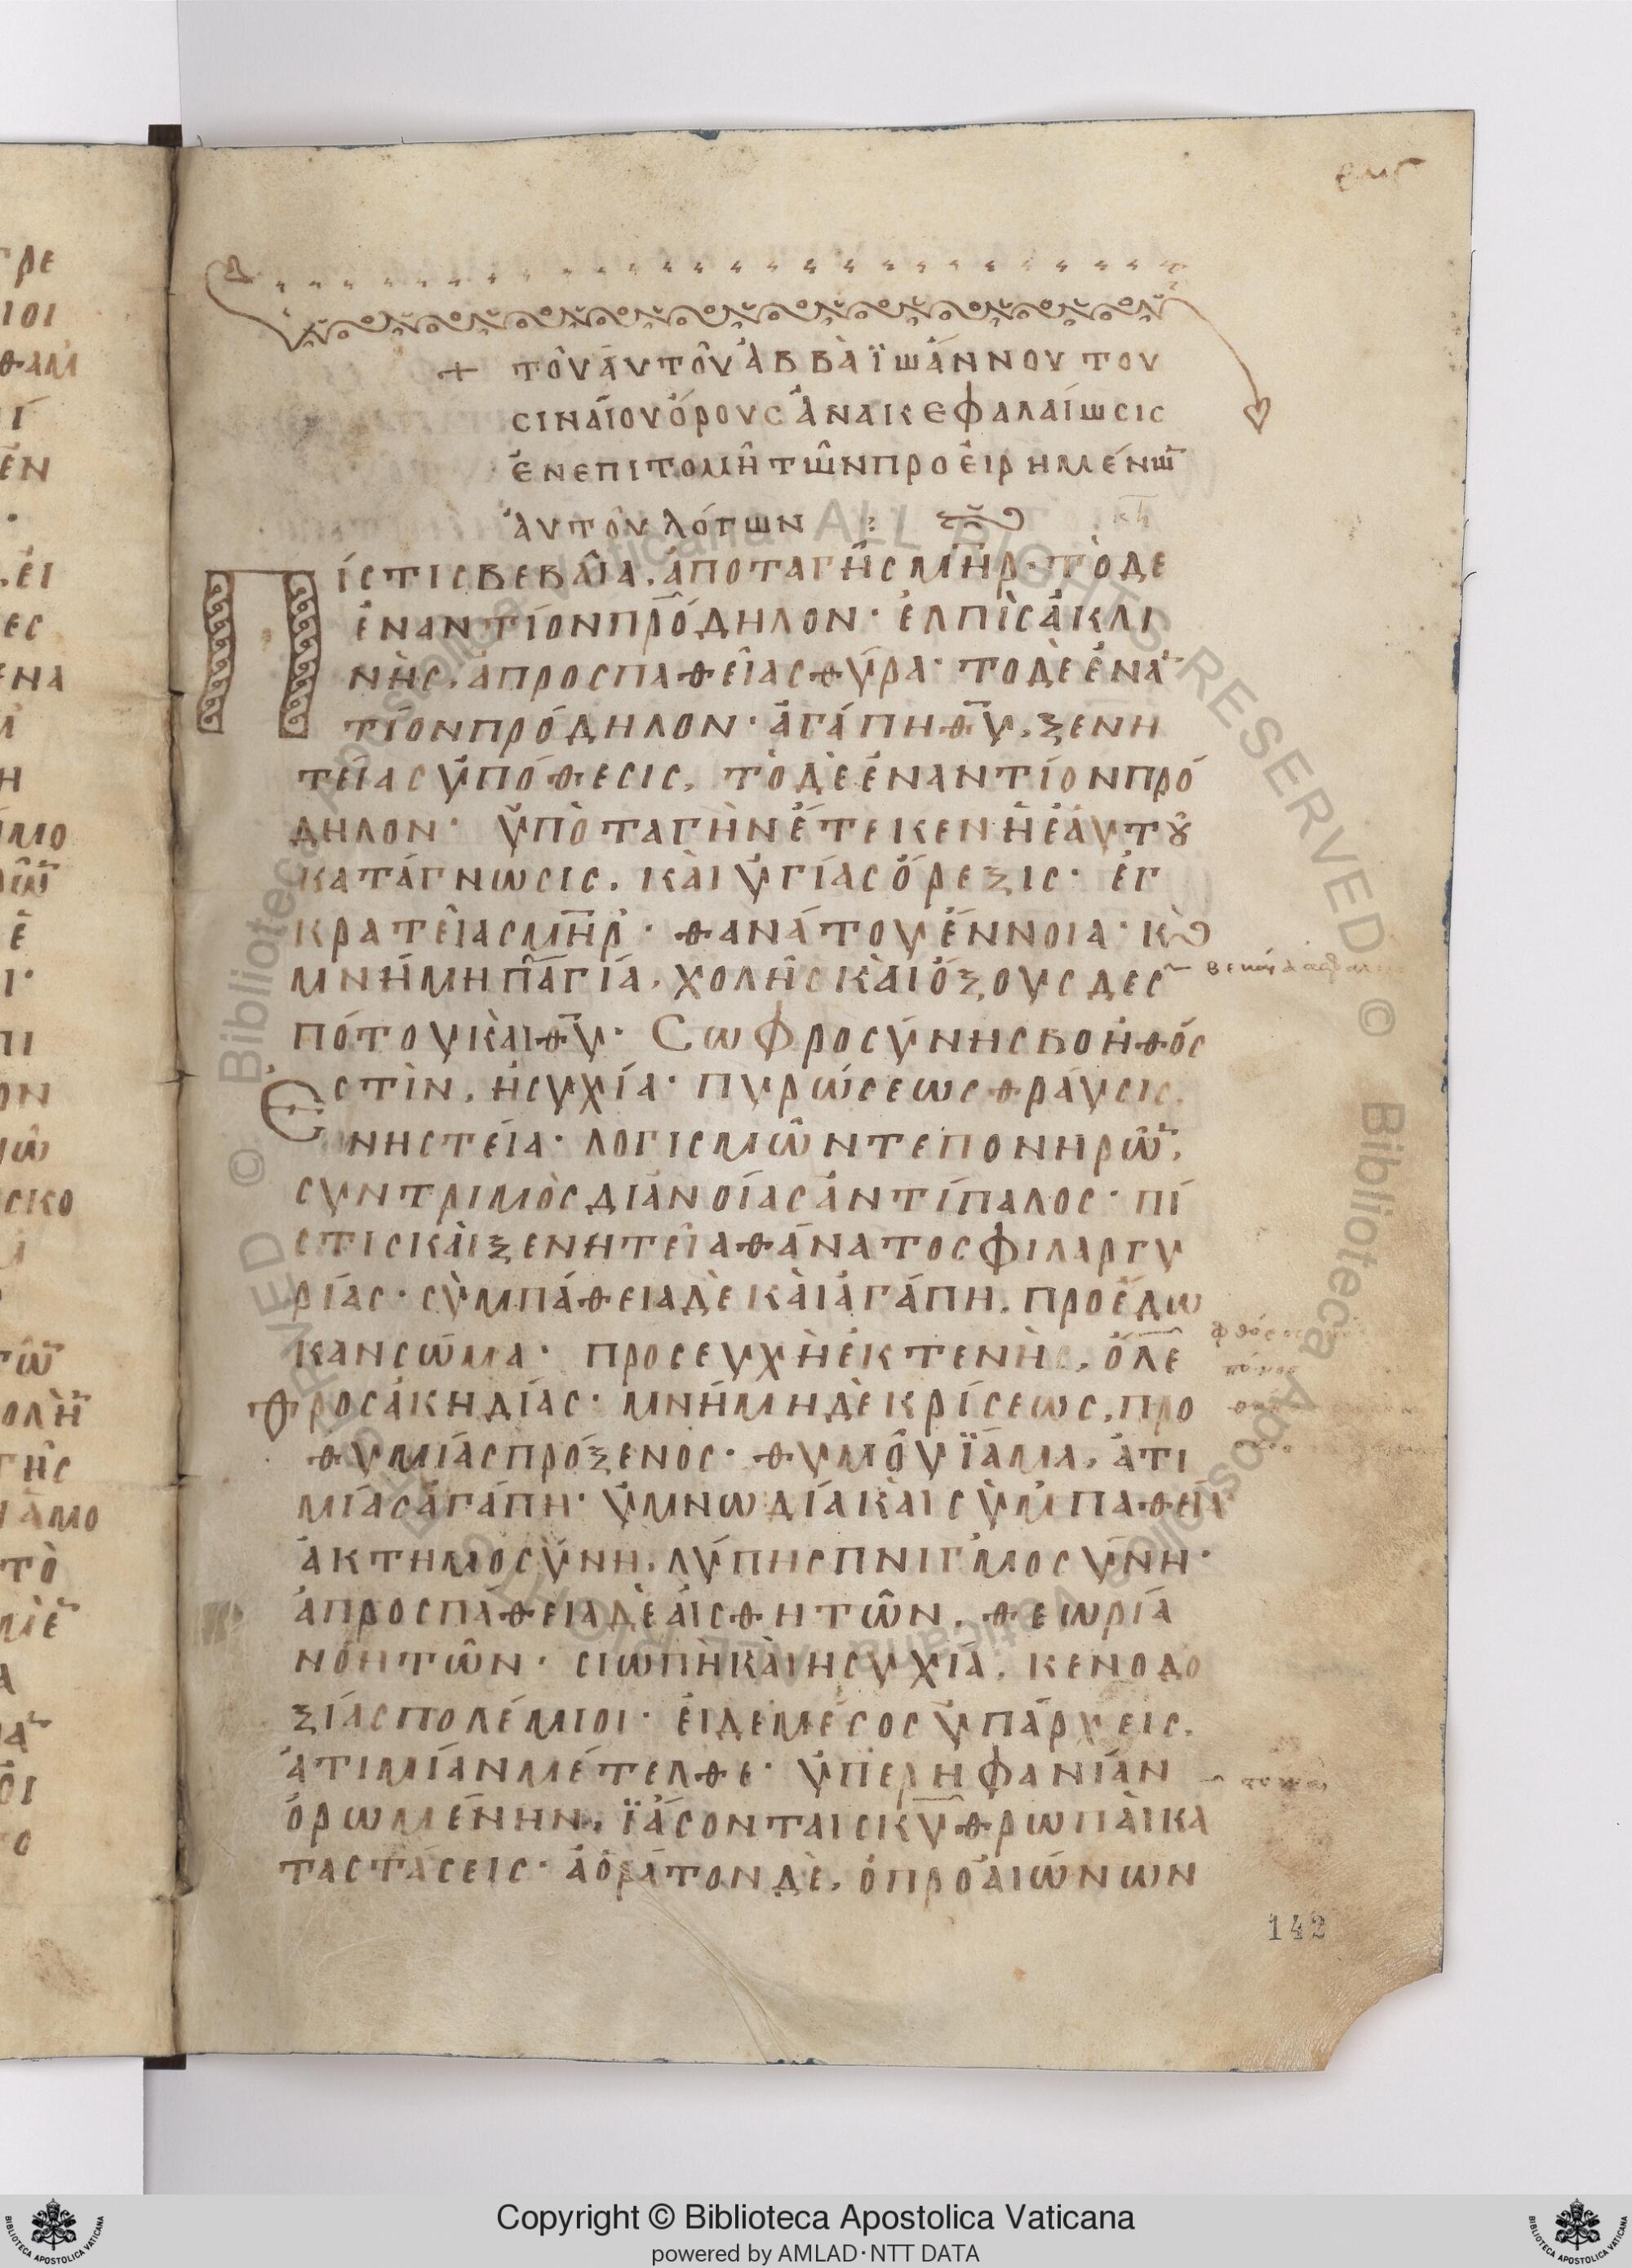 + τοῦ ἀυτοῦ ἀββὰ ϊωάννου του
σιναΐου ὄρους ἀνακεφαλαίωσις
ἐν επιτομῆ τῶν προειρημένω̅
ἀυτοῦ λόγων :
Πίστις βεβαῖα, ἀποταγῆς μη̅ρ· τὸ δε
ἐναντίον πρόδηλον· ἐλπὶς ἀκλι
νὴς, ἀπροσπαθεῖας θύρα· το δὲ ἐνα̅
τίον πρόδηλον· ἀγάπη θ̅υ, ξενη
τείας ὑπόθεσις, τὸ δὲ ἐναντίον πρό
δηλον· ὑποταγὴν ἔτεκεν ἡ ἑαυτȣ
κατάγνωσις, καὶ ὑγίας ὄρεξις· ἐγ
κρατεῖας μη̅ρ· θανάτου ἔννοια· κ̀
μνήμη παγία, χολῆς καὶ ὄξους δεσ
πότου καὶ θ̅υ· Σωφροσύνης βοηθός
ἐστὶν, ἡσυχία· πυρώσεως θραύσις
νηστεία· λογισμῶν τε πονηρῶ̅,
συντριμὸς διανοίας ἀντίπαλος· πί
στις καὶ ξενητεῖα θάνατος φιλαργυ
ρίας· σὺμπάθεια δὲ καὶ ἀγάπη, προέδω
καν σώμα· προσευχὴ ἐκτενὴς, ὄλε
θρος ἀκηδίας· μνήμη δὲ κρίσεως, προ
θυμίας πρόξενος· θυμοῦ ϊάμα, ἀτι
μίας ἀγάπη· ὑμνωδία καὶ σὺμπαθεια
ἀκτημοσύνη, λύπης πνιγμοσύνη·
ἀπροσπάθεια δὲ ἀισθητῶν, θεωρία
νοητῶν· σιωπὴ καὶ ησυχία, κενοδο
ξίας πολέμιοι· ἐι δε μέσος ὑπάρχεις,
ἀτιμίαν μέτελθε· ὑπερηφανίαν
ὁρωμένην, ϊάσονται σκυθρωπαὶ κα
ταστάσεις· ἀόρατον δὲ, ὁ προ αιώνων
142
Copyright © Biblioteca Apostolica Vaticana
powered by AMLAD·NTT DATA